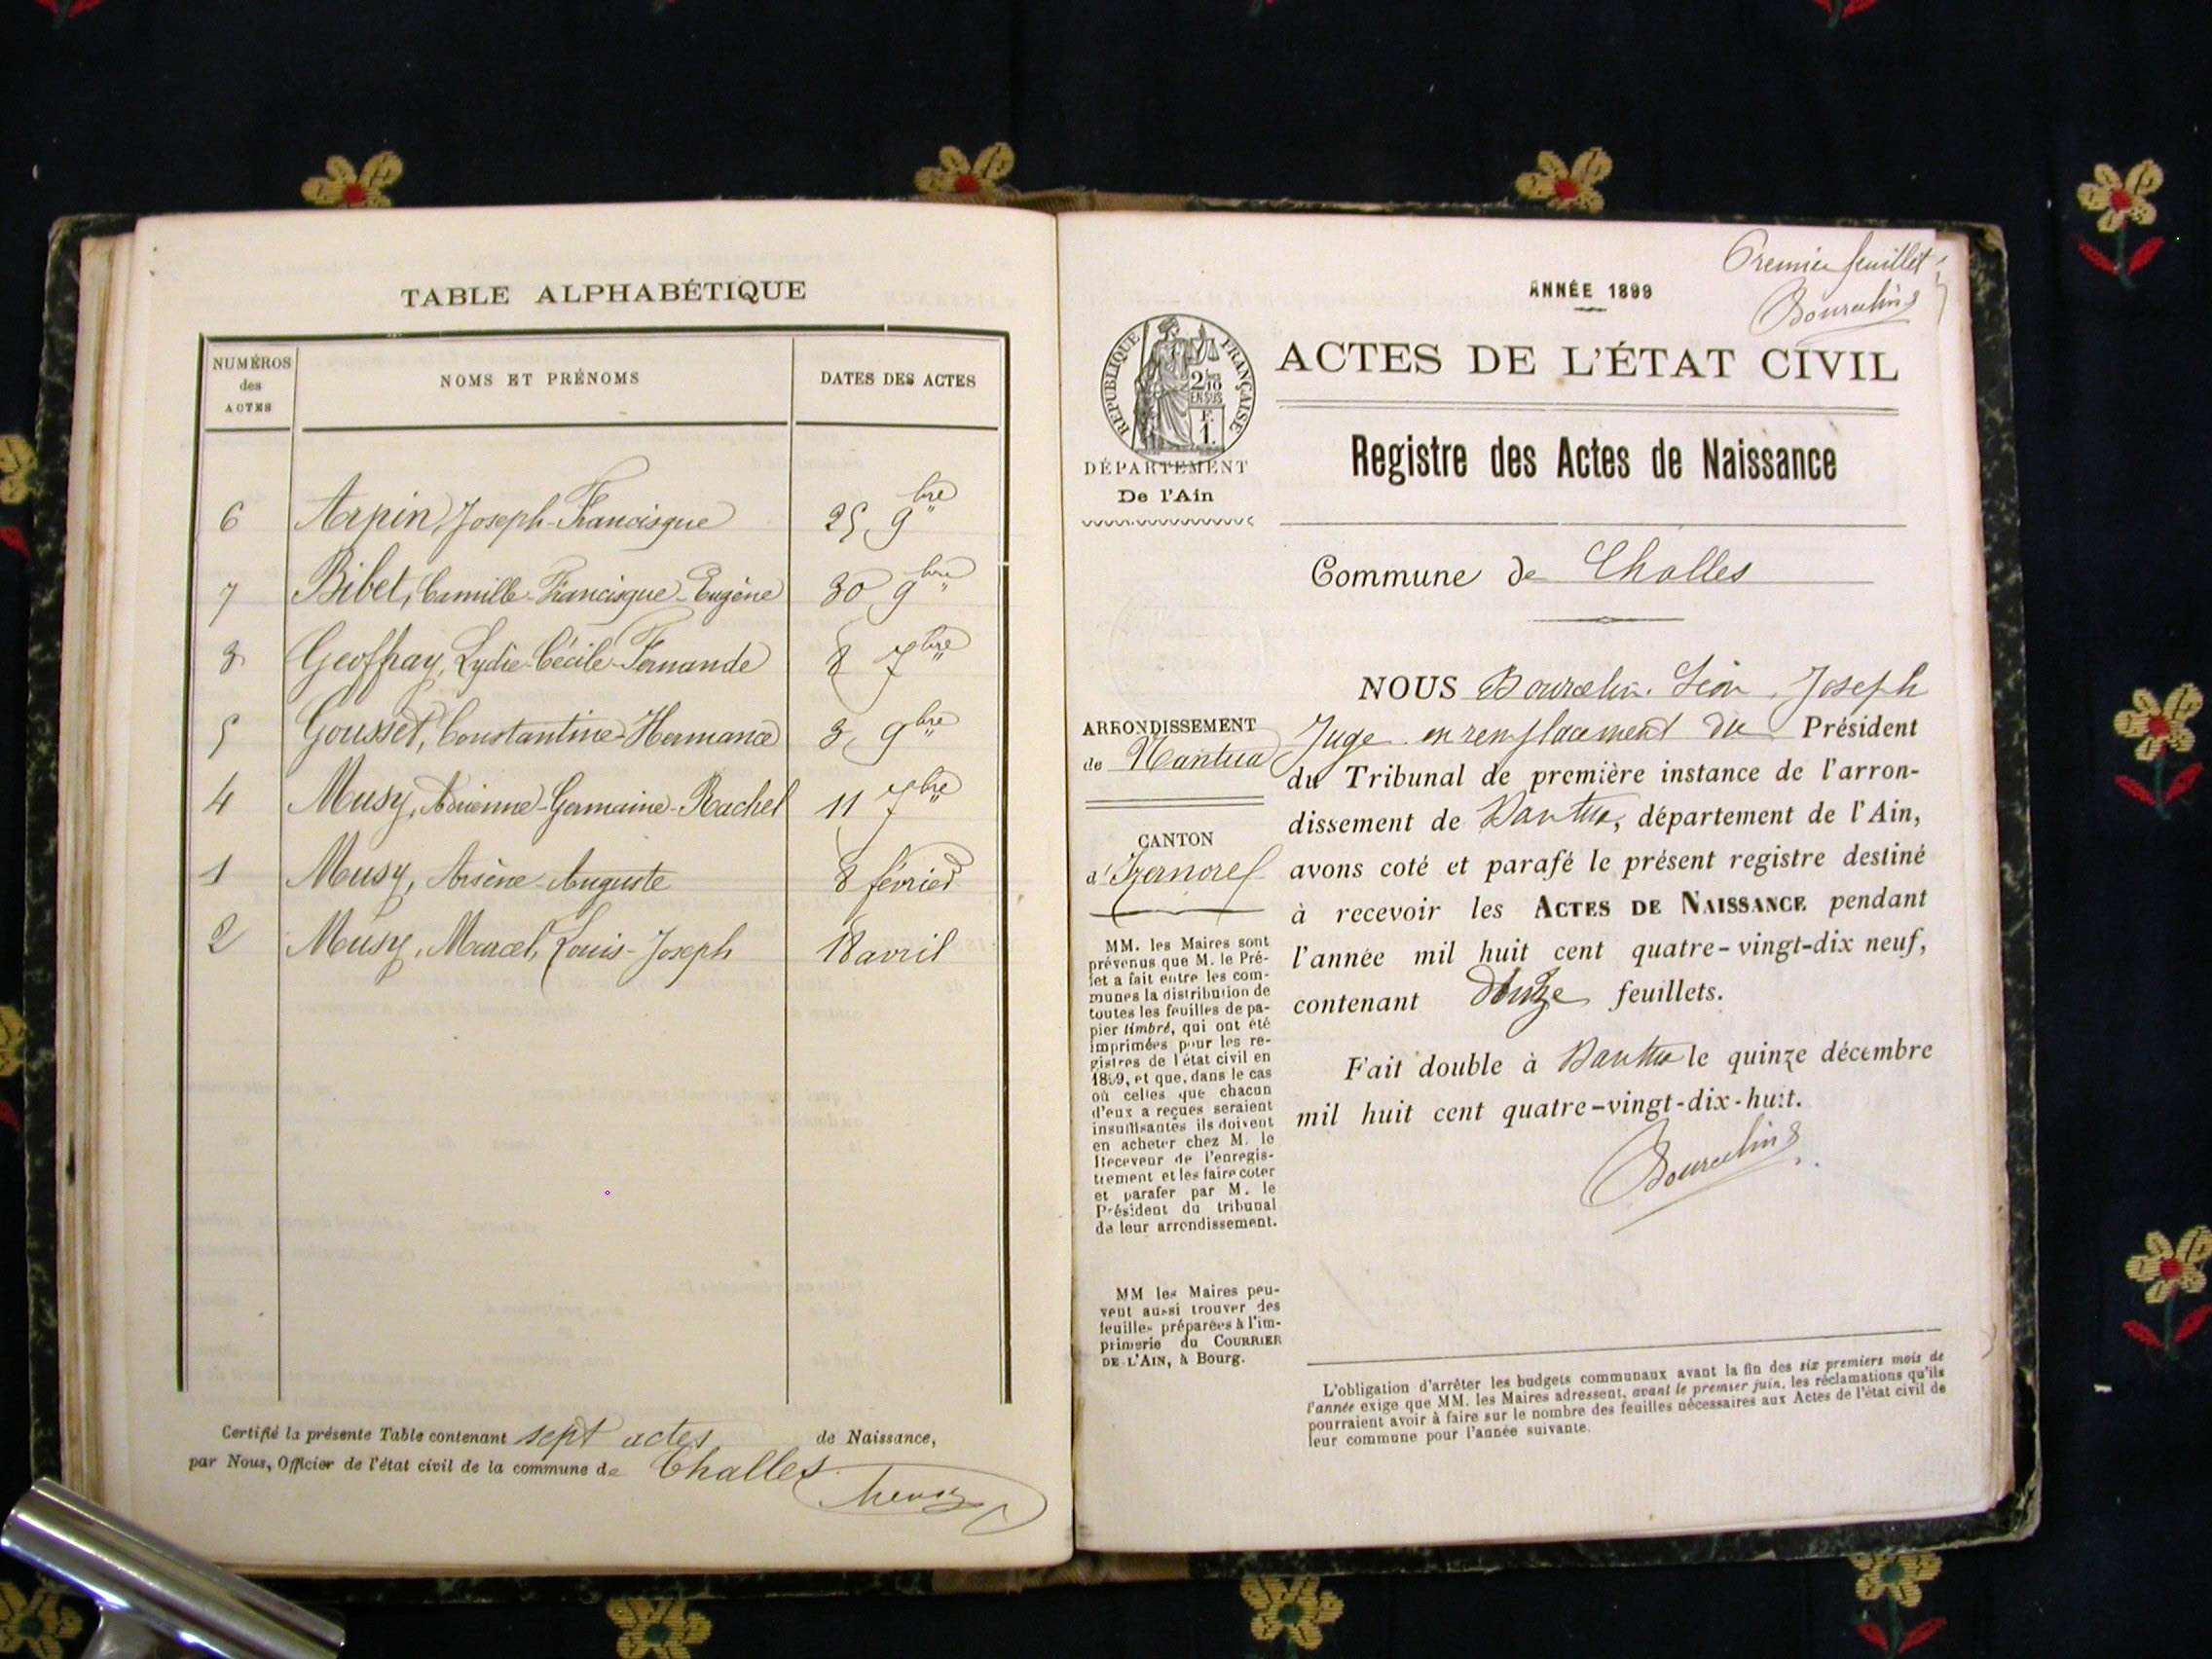 TABLE ALPHABÉTIQUE
NUMÉROS des ACTES
NOMS ET PRÉNOMS
DATES DES ACTES
6 Arpin, Joseph-Francisque 25 9bre
7 Bibet, Camille-Francisque-Eugène 30 9bre
3 Geoffray, Lydie-Cécile-Fernande 8 7bre
5 Gousset, Constantine-Hermance 3 9bre
4 Musy, Adrienne-Germaine-Rachel 11 7bre
1 Musy, Arsène-Auguste 8 février
2 Musy, Marcel, Louis-Joseph 18 avril
Certifié la présente Table contenant sept actes de Naissance,
par Nous, Officier de l'état civil de la commune de Challes
Premier feuillet
ANNÉE 1899
RÉPUBLIQUE FRANÇAISE
2/10 EN SUS
F. 1.
ACTES DE L'ÉTAT CIVIL
DÉPARTEMENT
De l'Ain
Registre des Actes de Naissance
Commune de Challes
ARRONDISSEMENT
de Nantua
CANTON
d'Izernore
MM. les Maires sont
prévenus que M. le Pré-
fet a fait entre les com-
munes la distribution de
toutes les feuilles de pa-
pier timbré, qui ont été
imprimées pour les re-
gistres de l'état civil en
1899, et que, dans le cas
où celles que chacun
d'eux a reçues seraient
insuffisantes ils doivent
en acheter chez M. le
Receveur de l'enregis-
trement et les faire coter
et parafer par M. le
Président du tribunal
de leur arrondissement.
MM les Maires peu-
vent aussi trouver des
feuilles préparées à l'im-
primerie du COURRIER
DE L'AIN, à Bourg.
NOUS Bourcelin Léon Joseph
Juge en remplacement du Président
du Tribunal de première instance de l'arron-
dissement de Nantua, département de l'Ain,
avons coté et parafé le présent registre destiné
à recevoir les ACTES DE NAISSANCE pendant
l'année mil huit cent quatre-vingt-dix neuf,
contenant douze feuillets.
Fait double à Nantua le quinze décembre
mil huit cent quatre-vingt-dix-huit.
L'obligation d'arrêter les budgets communaux avant la fin des six premiers mois de
l'année exige que MM. les Maires adressent, avant le premier juin, les réclamations qu'ils
pourraient avoir à faire sur le nombre des feuilles nécessaires aux Actes de l'état civil de
leur commune pour l'année suivante.